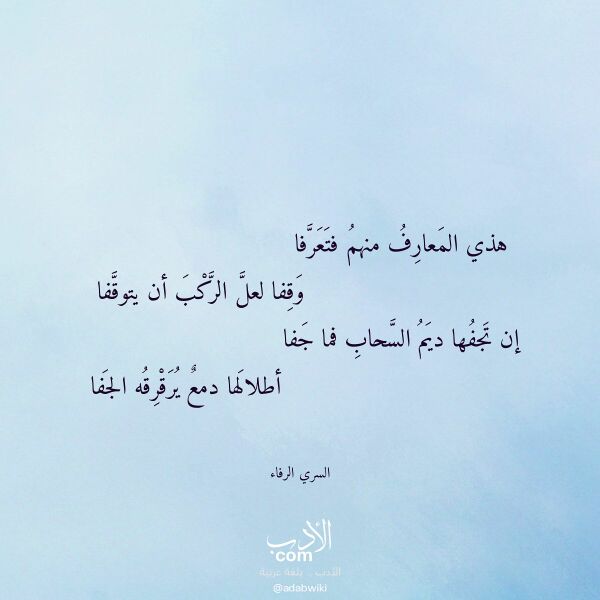 هذي المَعارِفُ منهمُ فتَعَرَّفا
وَقِفا لعلَّ الرَّكْبَ أن يتوقَّفا
إن تَجفُها ديَمُ السَّحابِ فما جَفا
أطلالَها دمعٌ يُرَقْرِقُه الجَفا
السري الرفاء
الأدب
com
الأدب .. بلغة عربية
@adabwiki